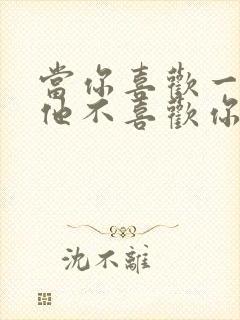 當你喜歡一
他不喜歡你
沈不離